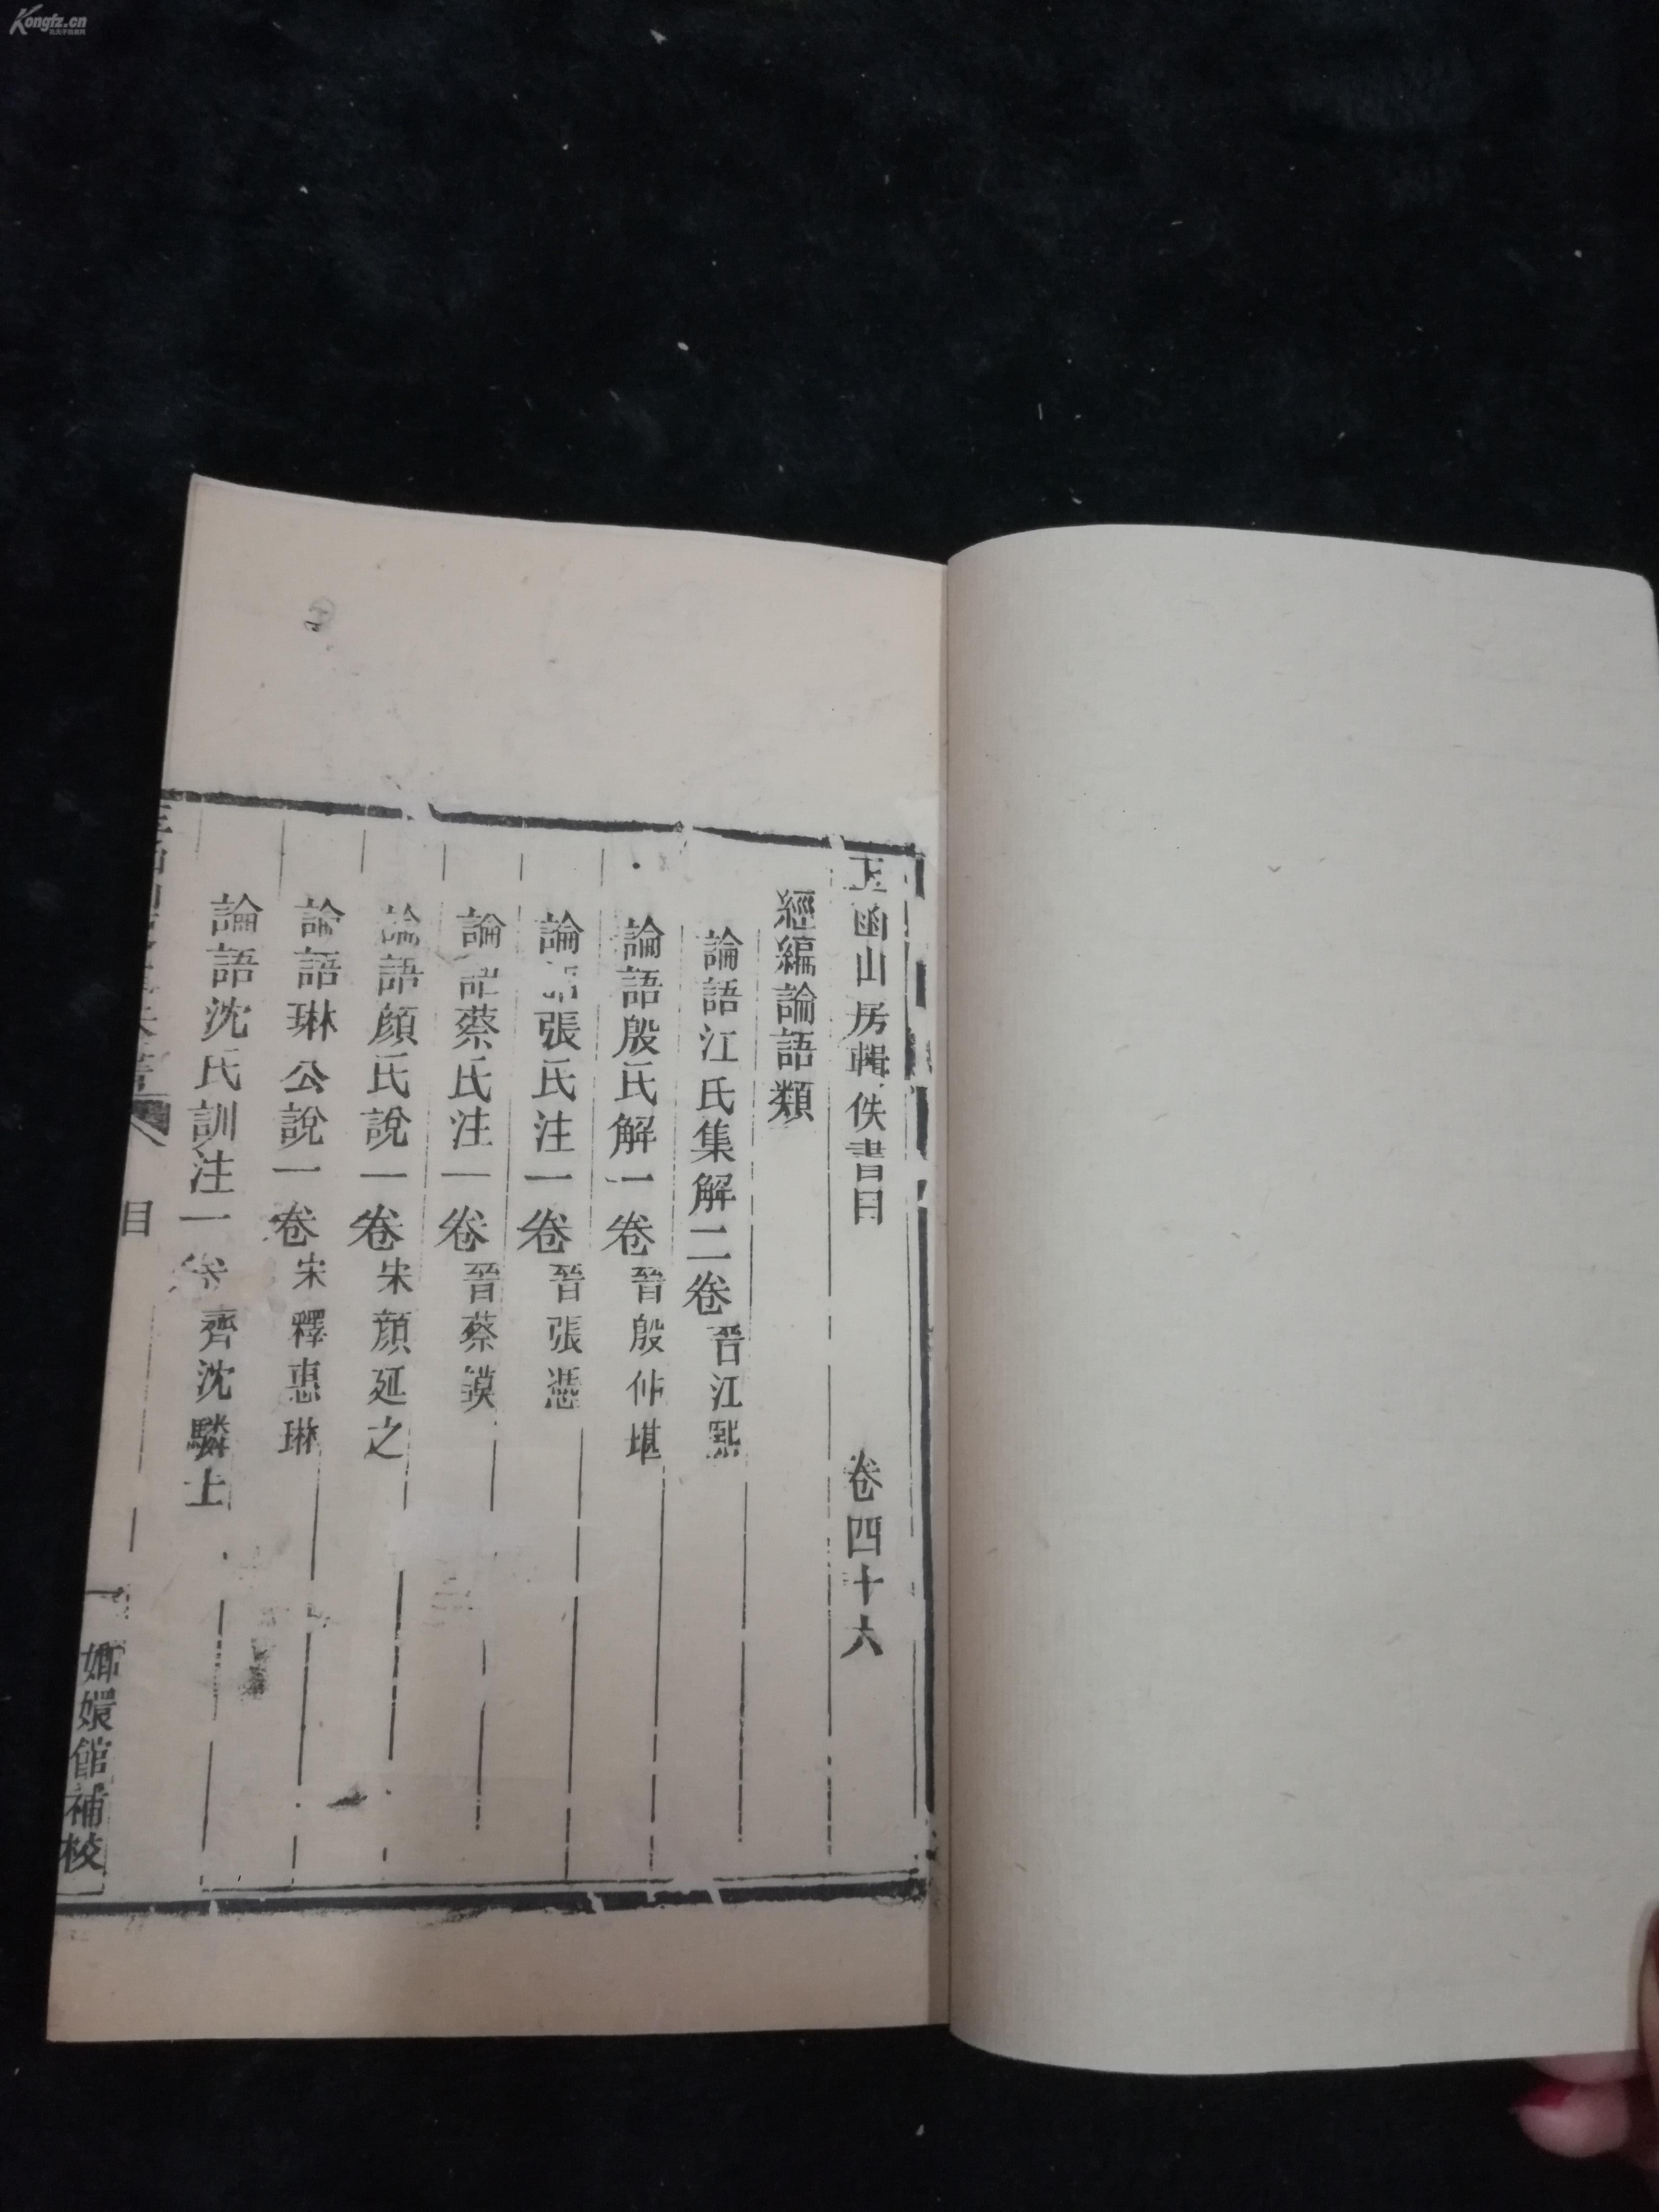 玉函山房輯佚書目 卷四十六
經編論語類
論語江氏集解二卷 晉江熙
論語殷氏解一卷 晉殷仲堪
論語張氏注一卷 晉張憑
論語蔡氏注一卷 晉蔡謨
論語顏氏說一卷 宋顏延之
論語琳公說一卷 宋釋惠琳
論語沈氏訓注一卷 齊沈驎士
目
一
嫏嬛館補校
Kongfz.cn